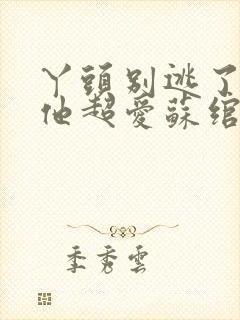 丫頭別逃了
他超愛蘇綰
季秀雲